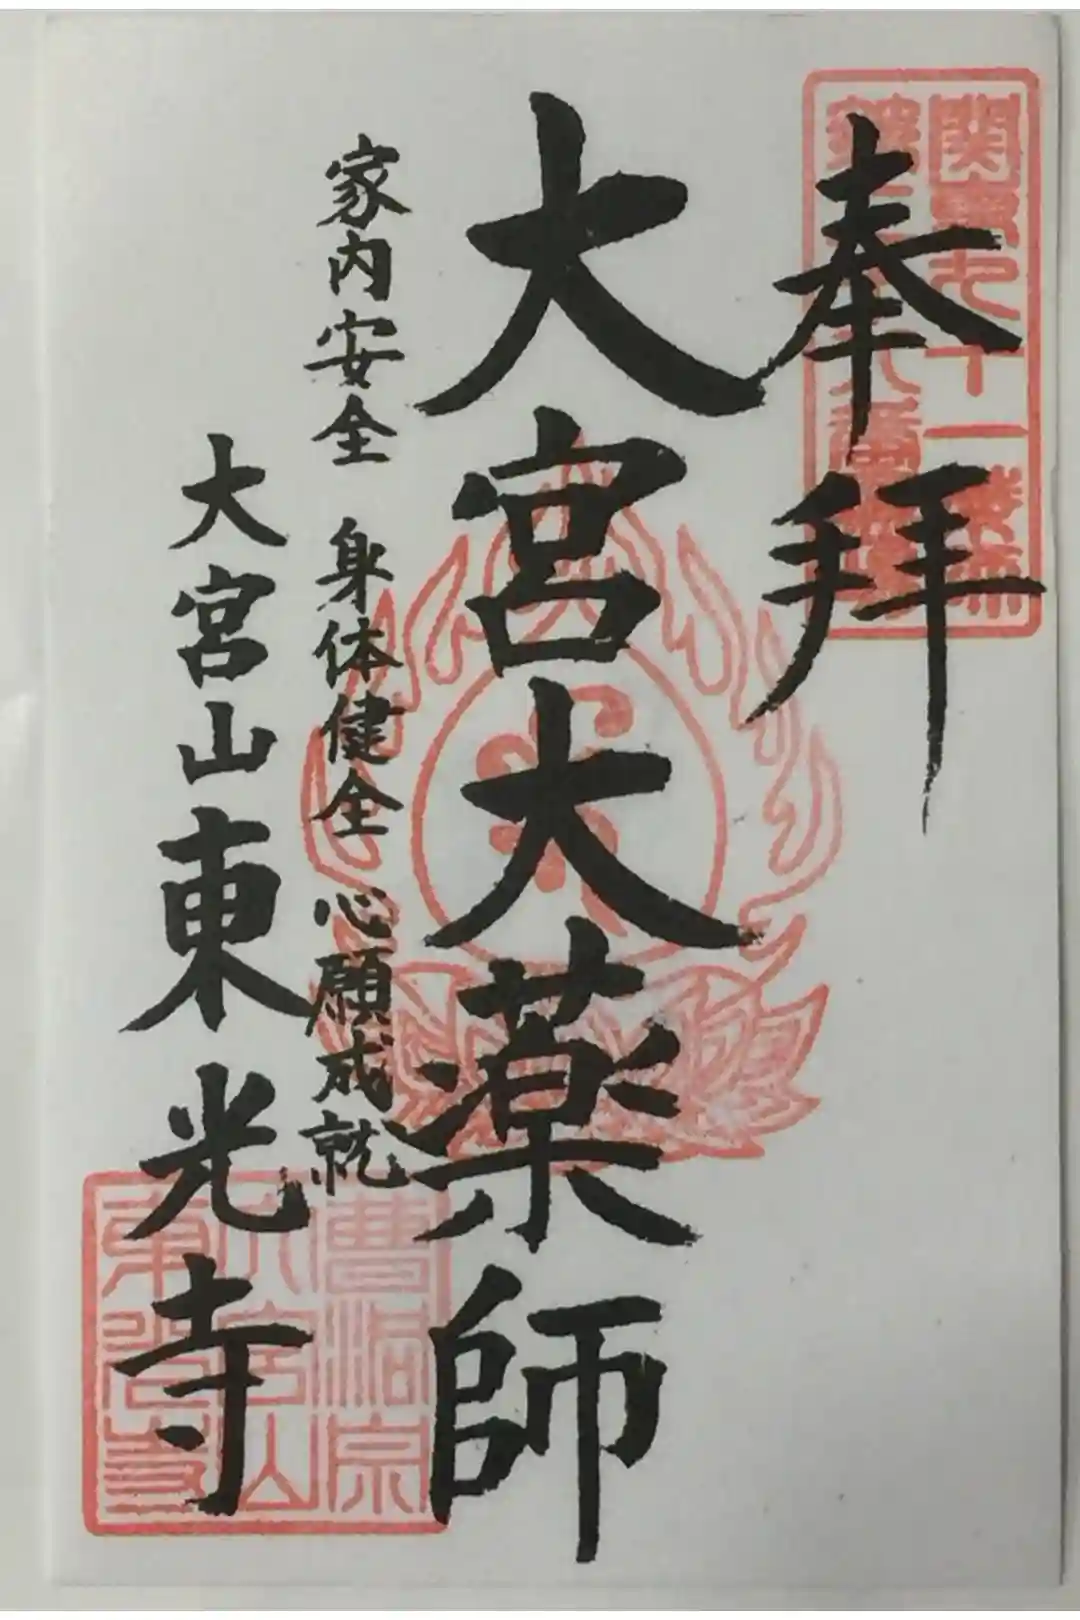 奉拝
大宮大薬師
家内安全 身体健全 心願成就
大宮山東光寺
曹洞宗
大宮山
東光寺